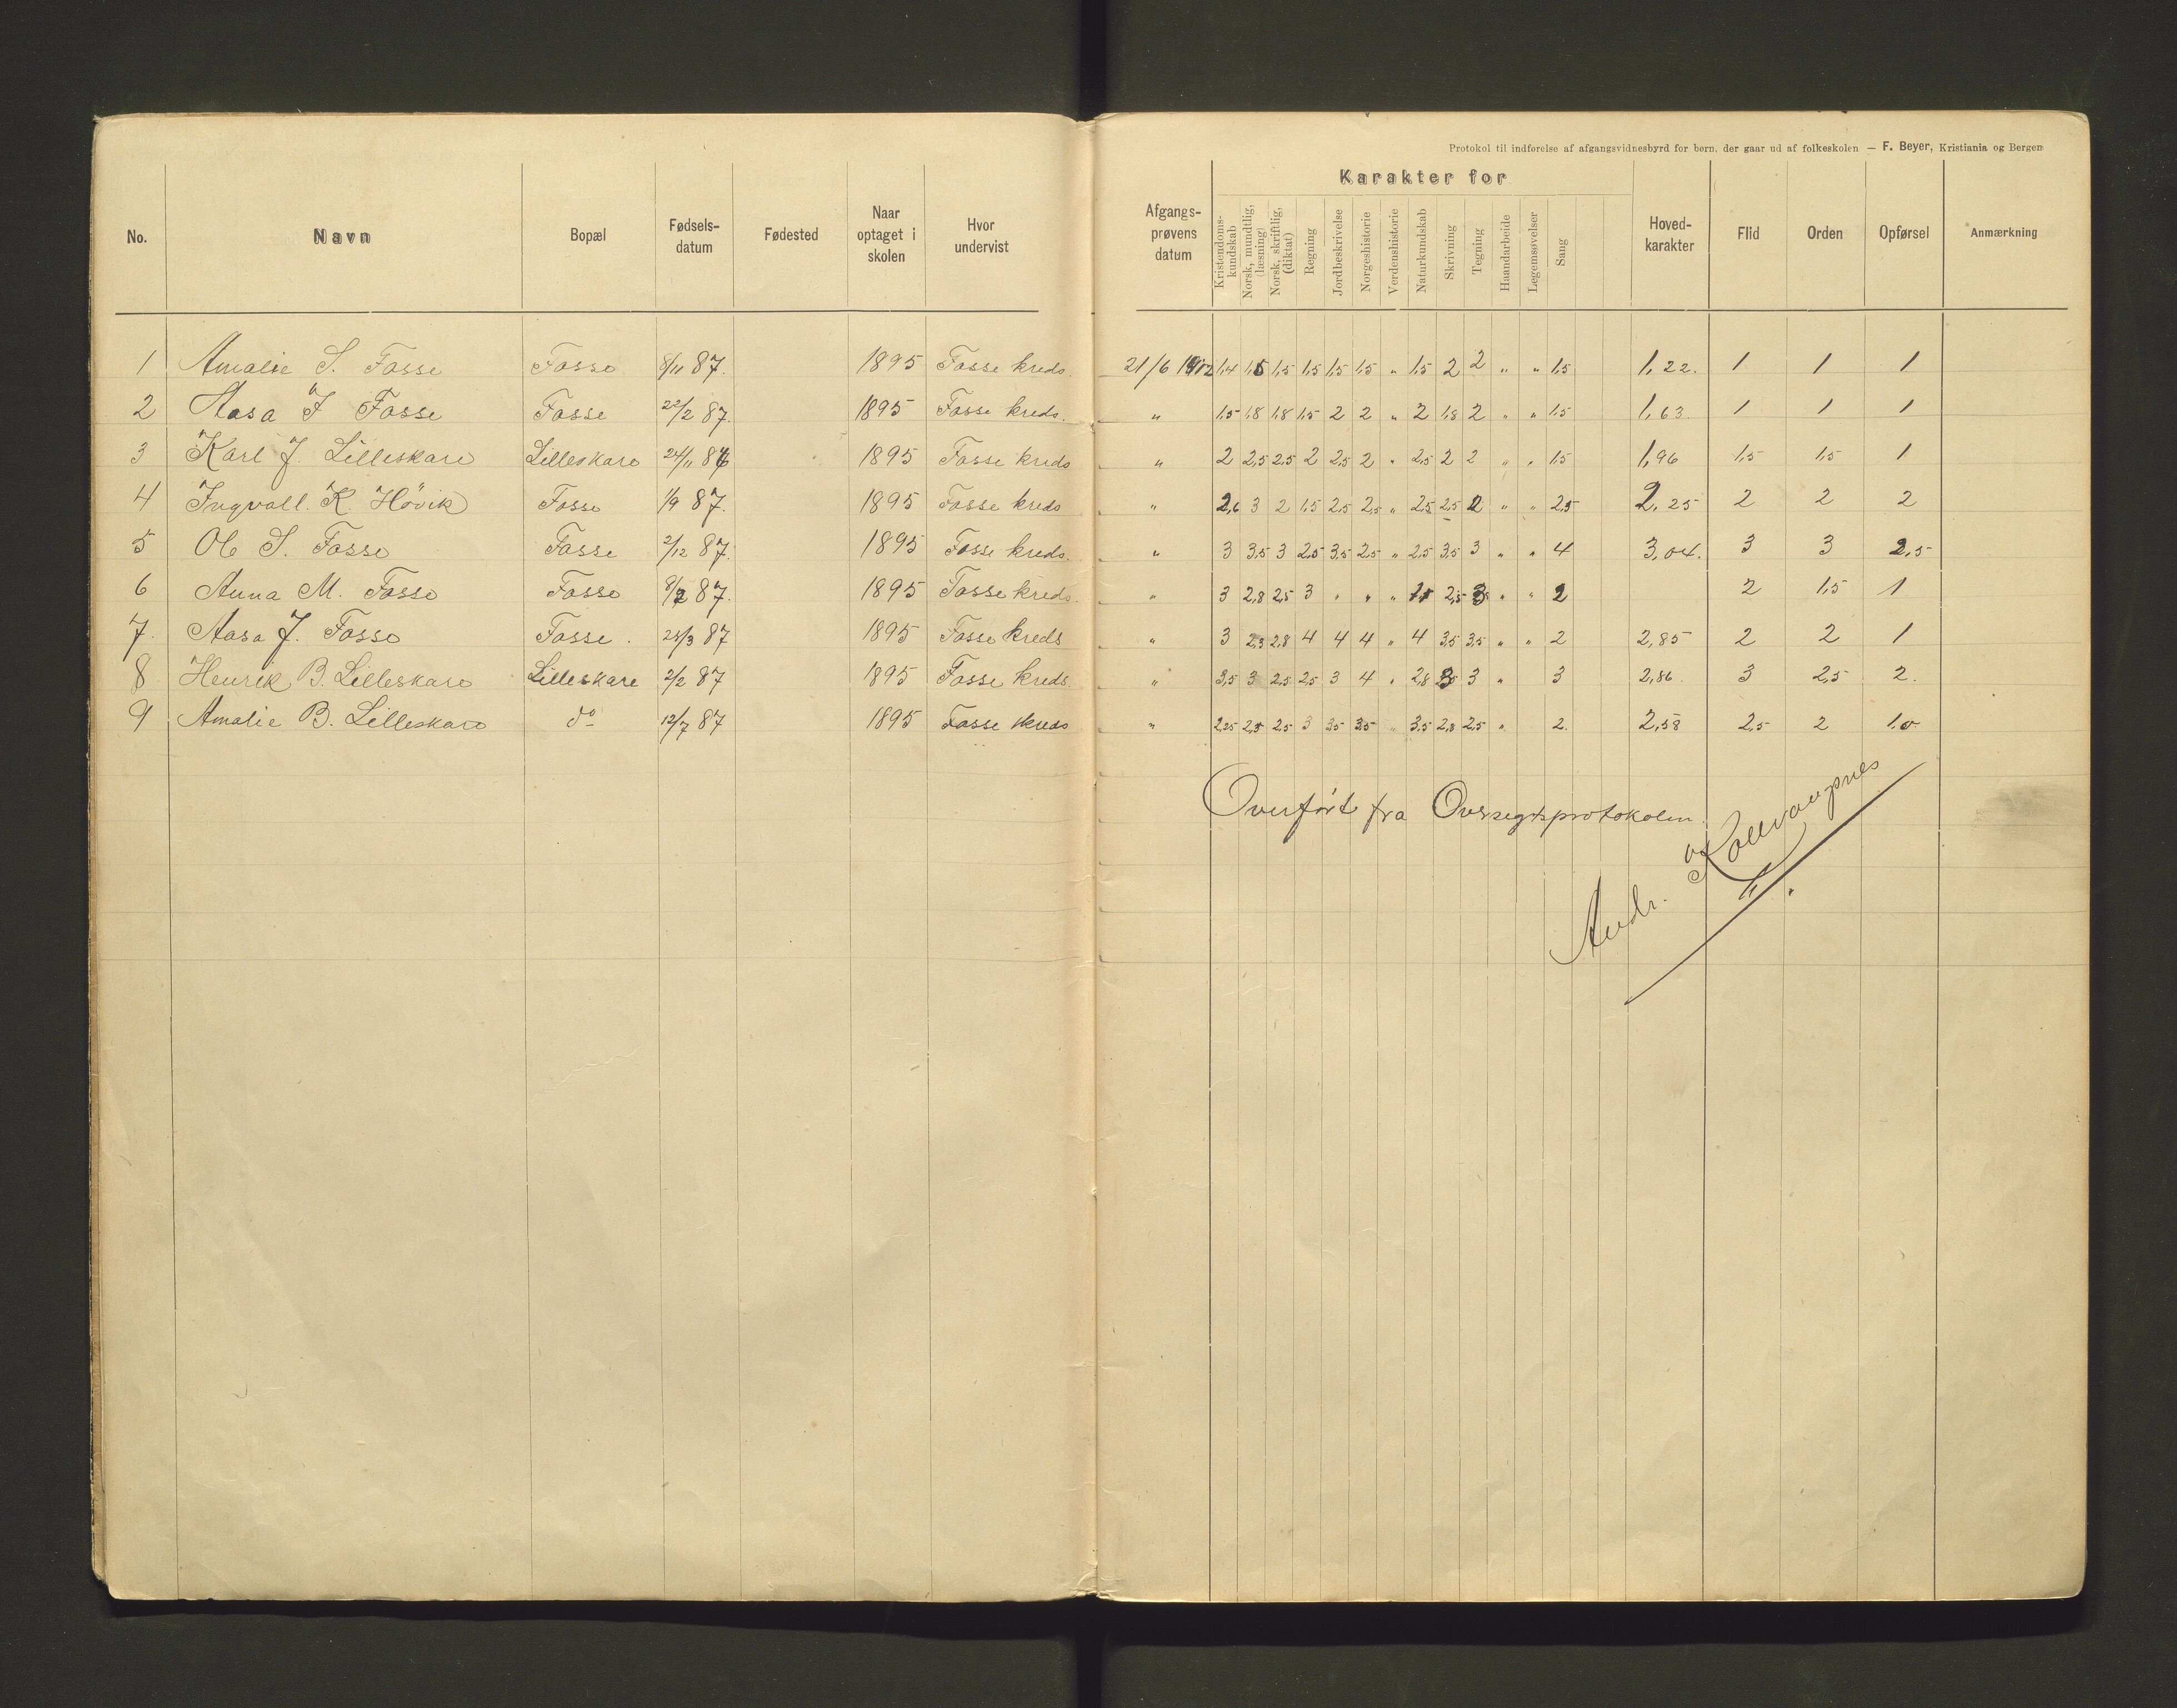 Protokol til indførelse af afgangsvidnesbyrd for børn, der gaar ud af folkeskolen — F. Beyer, Kristiania og Bergen
No. Navn Bopæl Fødsels-datum Fødested Naar optaget i skolen Hvor undervist Afgangs-prøvens datum Karakter for Kristendoms-kundskab Norsk, mundtlig, (læsning) Norsk, skriftlig, (diktat) Regning Jordbeskrivelse Norgeshistorie Verdenshistorie Naturkundskab Skrivning Tegning Haandarbeide Legemsøvelser Sang Hoved-karakter Flid Orden Opførsel Anmærkning
1 Amalie S. Fosse Fosse 8/11 87. 1895 Fosse kreds. 21/6 1902 1,4 1,5 1,5 1,5 1,5 1,5 " 1,5 2 2 " " 1,5 1,22. 1 1 1
2 Aasa J Fosse Fosse 22/2 87. 1895 Fosse kreds. " 1,5 1,8 1,8 1,5 2 2 " 2 1,8 2 " " 1,5 1,63. 1 1 1
3 Karl J. Lilleskare Lilleskare 24/11 86 1895 Fosse kreds " 2 2,5 2,5 2 2,5 2 " 2,5 2 2 " " 1,5 1,96 1,5 1,5 1
4 Ingvall. K. Hövik Fosse 1/9 87. 1895 Fosse kreds " 2,6 3 2 1,5 2,5 2,5 " 2,5 2,5 2 " " 2,5 2,25 2 2 2
5 Ole S. Fosse Fosse 2/12 87. 1895 Fosse kreds. " 3 3,5 3 2,5 3,5 2,5 " 2,5 3,5 3 " " 4 3,04. 3 3 2,5
6 Anna M. Fosse Fosse 8/2 87. 1895 Fosse kreds. " 3 2,8 2,5 3 " " " 2,5 3 " " 2 2 1,5 1
7. Aasa J. Fosse Fosse. 25/3 87 1895 Fosse kreds " 3 2,3 2,8 4 4 4 " 4 3,5 3,5 " " 2 2,85 2 2 1
8 Henrik B. Lilleskare Lilleskare 2/2 87 1895 Fosse kreds. " 3,5 3 2,5 2,5 3 4 " 2,8 3 3 " 3 2,86 3 2,5 2.
9 Amalie B. Lilleskare do 12/7 87 1895 Fosse kreds " 2,25 2,5 2,5 3 3,5 3,5 " 3,5 2,8 2,5 " 2. 2,58 2,5 2 1,0
Overført fra Oversegtsprotokolen.
Andr.